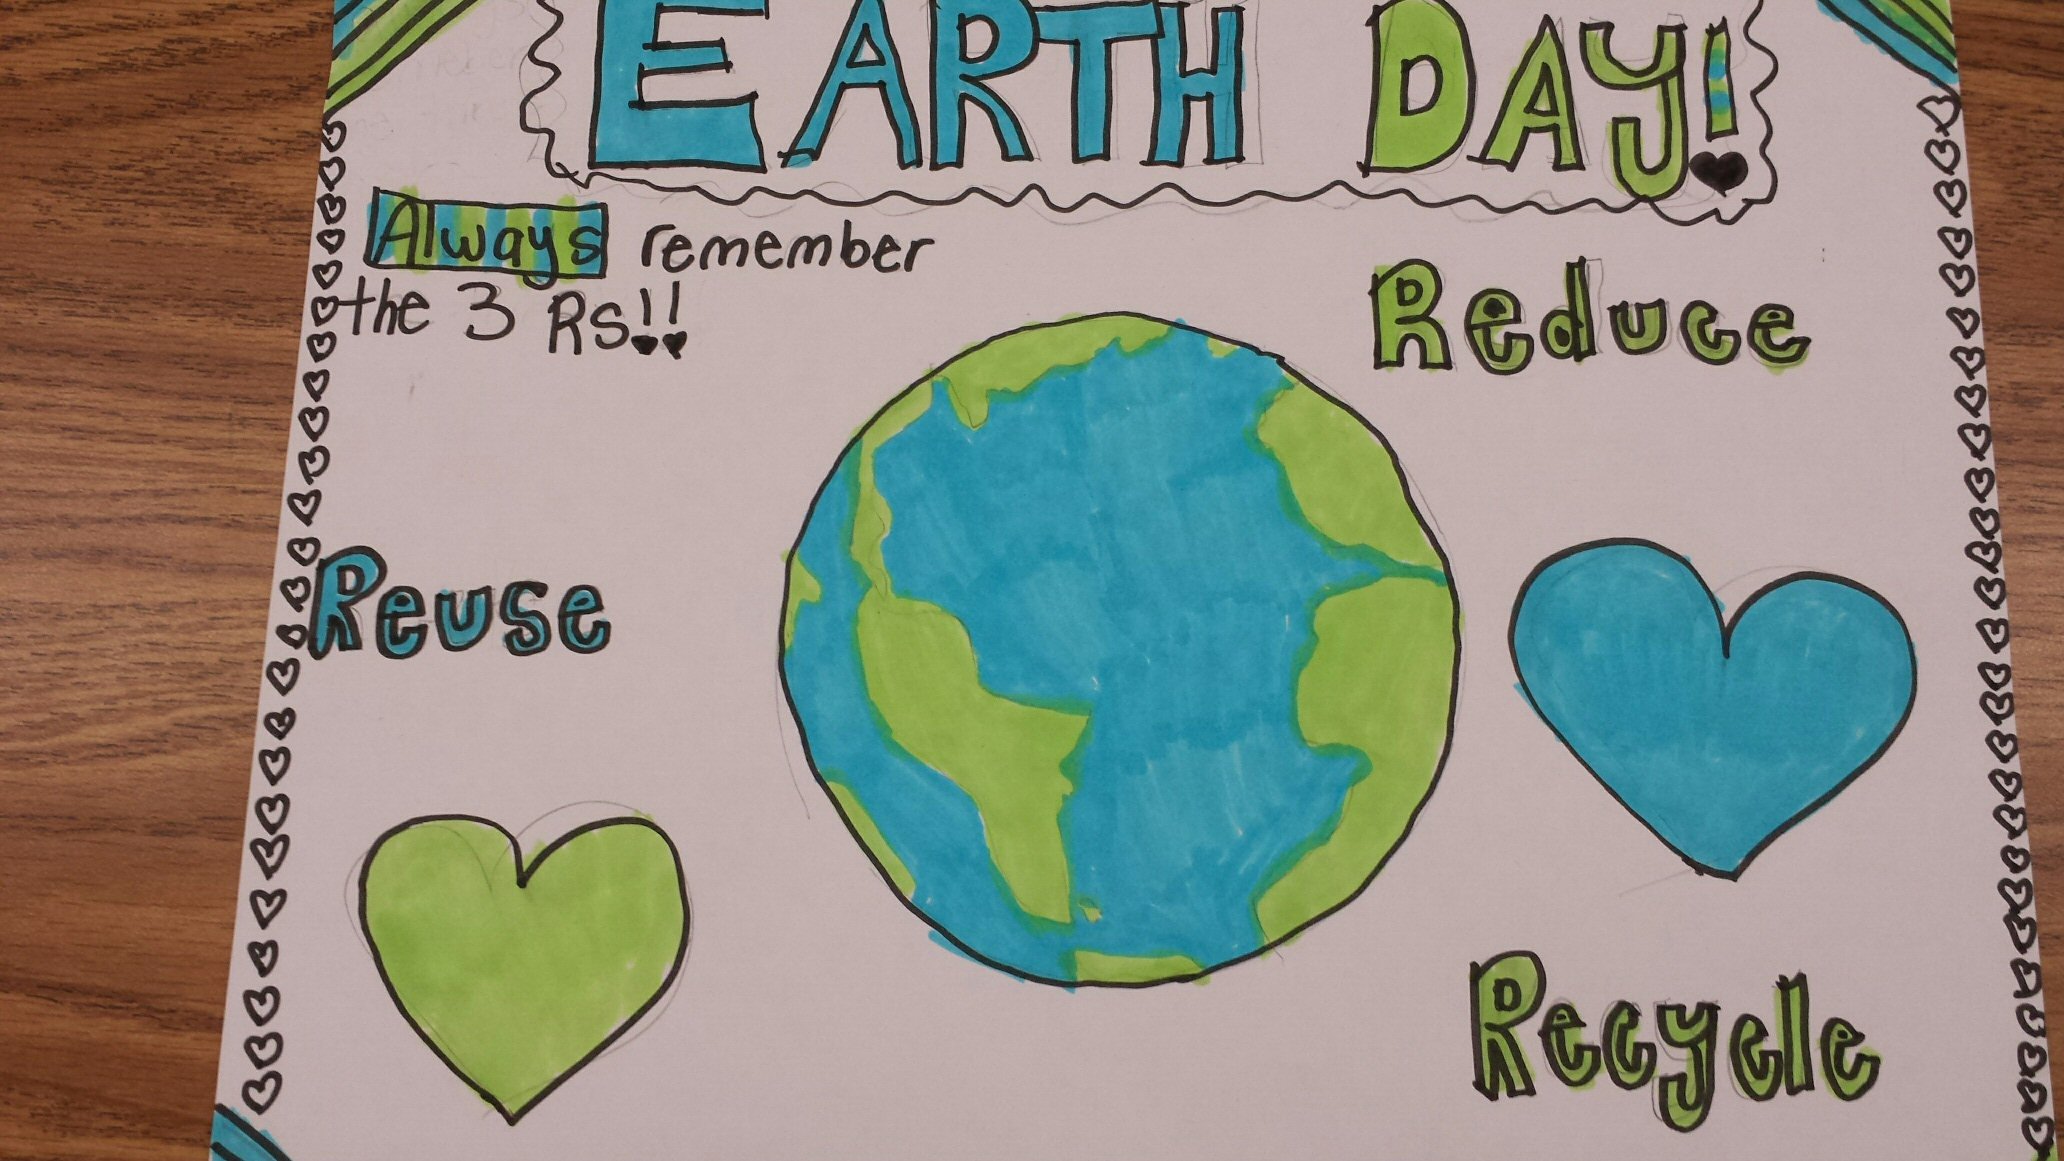 EARTH DAY!
Always remember
the 3 Rs!!
Reduce
Reuse
Recycle